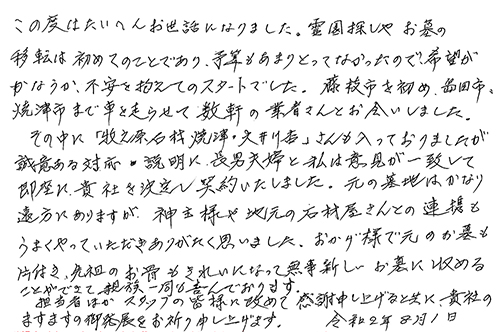 この度はたいへんお世話になりました。霊園探しや お墓の
移転は初めてのことであり、予算もあまりとってなかったので、希望が
かなうか、不安を抱えてのスタートでした。藤枝市を初め、島田市、
焼津市まで車を走らせて、数軒の業者さんとお会いしました。
その中に「牧之原石材 焼津・大井川店」さんも入っておりましたが
誠意ある対応・説明に、長男夫婦と私は意見が一致して
即座に、貴社を決定し契約いたしました。元の墓地はかなり
遠方にありますが、神主様や地元の石材屋さんとの連携も
うまくやっていただきありがたく思いました。おかげ様で元のお墓も
片付き、先祖のお骨もきれいになって無事新しいお墓に収める
ことができて、親族一同も喜んでおります。
担当者ほかスタッフの皆様に改めて感謝申し上げると共に、貴社の
ますますの御発展をお祈り申し上げます。 令和2年8月1日